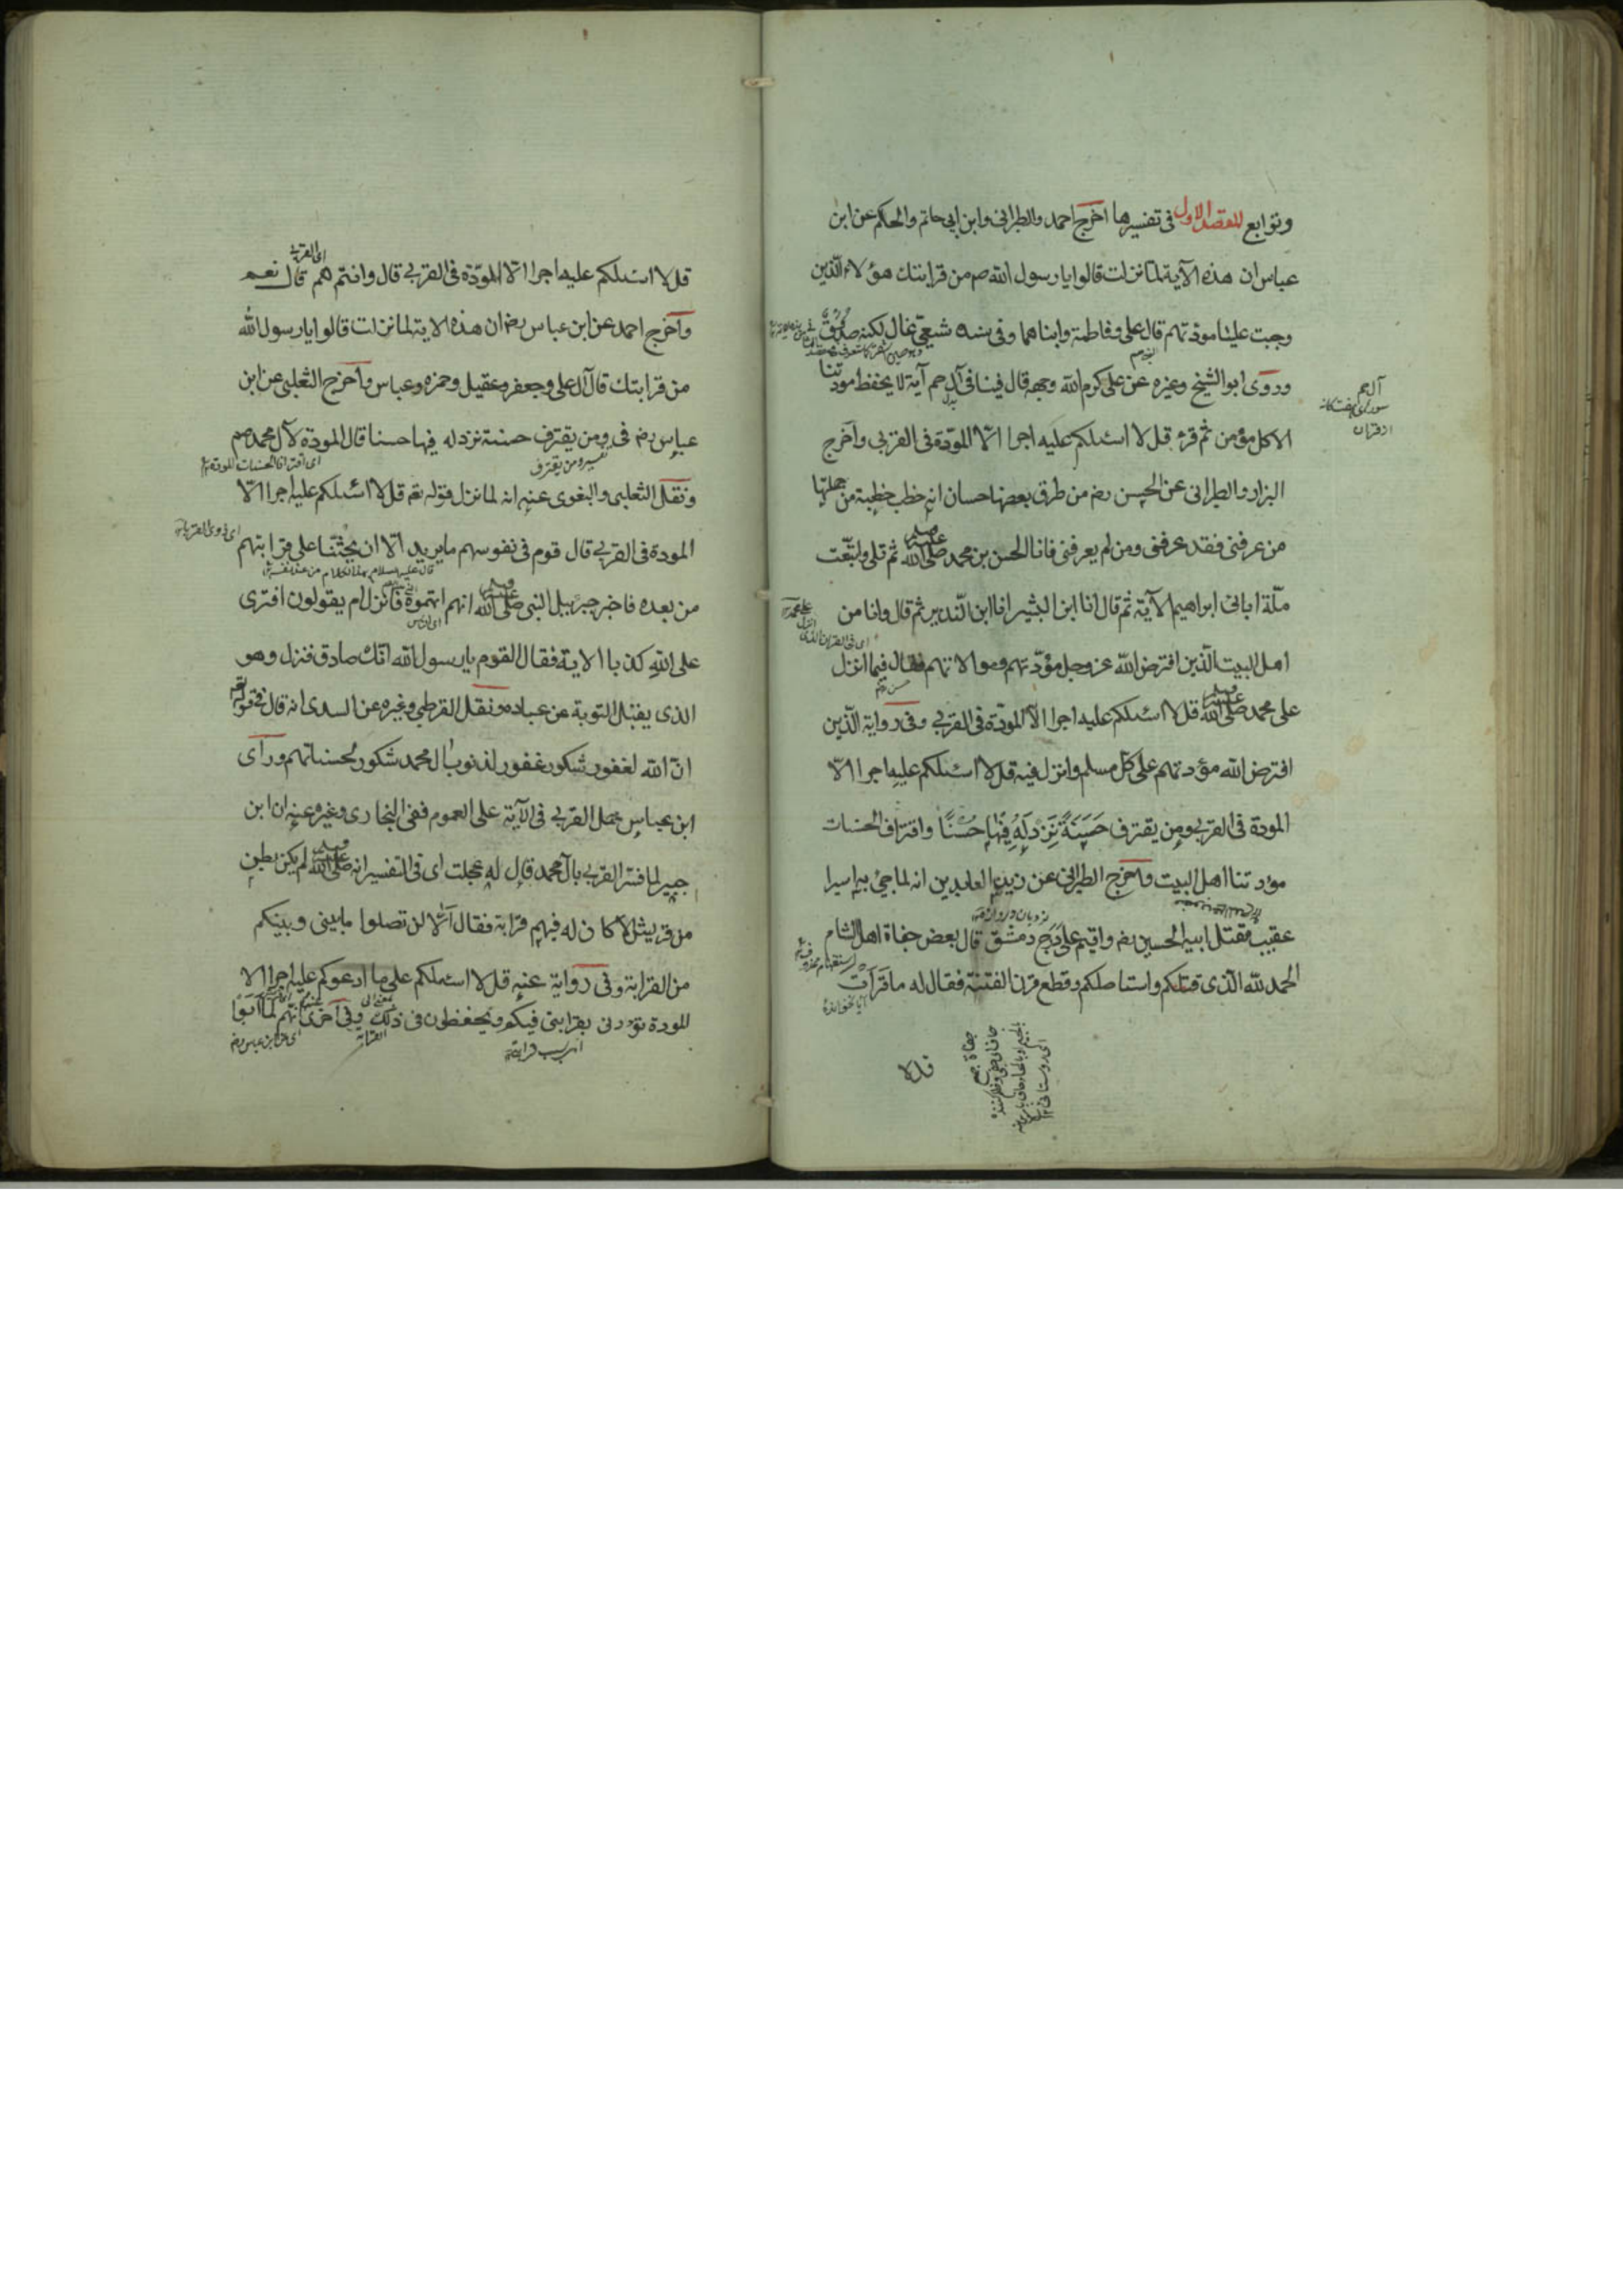 وتوابع المقصد الاول فى تفسيرها اخرج احمد والطبرانى وابن ابى حاتم والحكم عن ابن
عباس ان هذه الآية لما نزلت قالوا يا رسول الله صم من قرابتك هؤلاء الذين
وجبت علينا مودتهم قال على وفاطمة وابناهما وفى سنده شيعى غال لكنه صدوق
وروى ابو الشيخ وغيره عن على كرم الله وجهه قال فينا فى آل حم آية لا يحفظ مودتنا
الا كل مؤمن ثم قرء قل لا اسئلكم عليه اجرا الا المودة فى القربى وآخرج
البزار والطبرانى عن الحسن رضم من طرق بعضها حسان انه خطب خطبة من جملتها
من عرفنى فقد عرفنى ومن لم يعرفنى فانا الحسن بن محمد صلى الله عليه وسلم ثم تلى واتبعت
ملة ابائى ابراهيم الآية ثم قال انا ابن البشير انا ابن النذير ثم قال وانا من
اهل البيت الذين افترض الله عز وجل مؤدتهم وموالاتهم فقال فيما انزل
على محمد صلى الله عليه وسلم قل لا اسئلكم عليه اجرا الا المودة فى القربى وفى رواية الذين
افترض الله مؤدتهم على كل مسلم وانزل فيه قل لا اسئلكم عليه اجرا الا
المودة فى القربى ومن يقترف حَسَنَةً نَزِدْ لَهُ فِيْهَا حُسْنًا واقتراف الحسنات
مؤدتنا اهل البيت وآخرج الطبرانى عن زين العابدين انه لما جئ به اسيرا
عقيب مقتل ابيه الحسين رضم واقيم على درج دمشق قال بعض جفاة اهل الشام
الحمد لله الذى قتلكم واستاصلكم وقطع قرن الفتنة فقال له ما قرآت
قل لا
آل حم
از قرآن
قل لا اسئلكم عليه اجرا الا المودة فى القربى قال وانتم هم قال نعم
وآخرج احمد عن ابن عباس رضم ان هذه الاية لما نزلت قالوا يا رسول الله
من قرابتك قال آل على وجعفر وعقيل وحمزه وعباس وآخرج الثعلبى عن ابن
عباس رضم فى ومن يقترف حسنة نزد له فيها حسنا قال المودة لآل محمد صم
ونقل الثعلبى والبغوى عنه انه لما نزل قوله تعم قل لا اسئلكم عليه اجرا الا
المودة فى القربى قال قوم فى نفوسهم ما يريد الا ان يحثنا على قرابتهم
من بعده فاخبر جبرئيل النبى صلى الله عليه وسلم انهم اتهموه فانزل ام يقولون افترى
على الله كذبا الاية فقال القوم يا رسول الله انك صادق فنزل وهو
الذى يقبل التوبة عن عباده ونقل القرطبى وغيره عن السدى انه قال فى قوله تعم
ان الله لغفور شكور غفور لذنوب آل محمد شكور لحسناتهم ورآى
ابن عباس حمل القربى فى الآية على العموم ففى البخارى وغيره عنه ان ابن
جبير لما فسر القربى بآل محمد قال له عجلت اى فى التفسير انه صلى الله عليه وسلم لم يكن بطن
من قريش الا كان له فيهم قرابة فقال الا ان تصلوا ما بينى وبينكم
من القرابة وفى رواية عنه قل لا اسئلكم على ما ادعوكم عليه اجرا الا
المودة تودونى بقرابتى فيكم وتحفظون فى ذلك وفى آخرى انهم لما ابوا